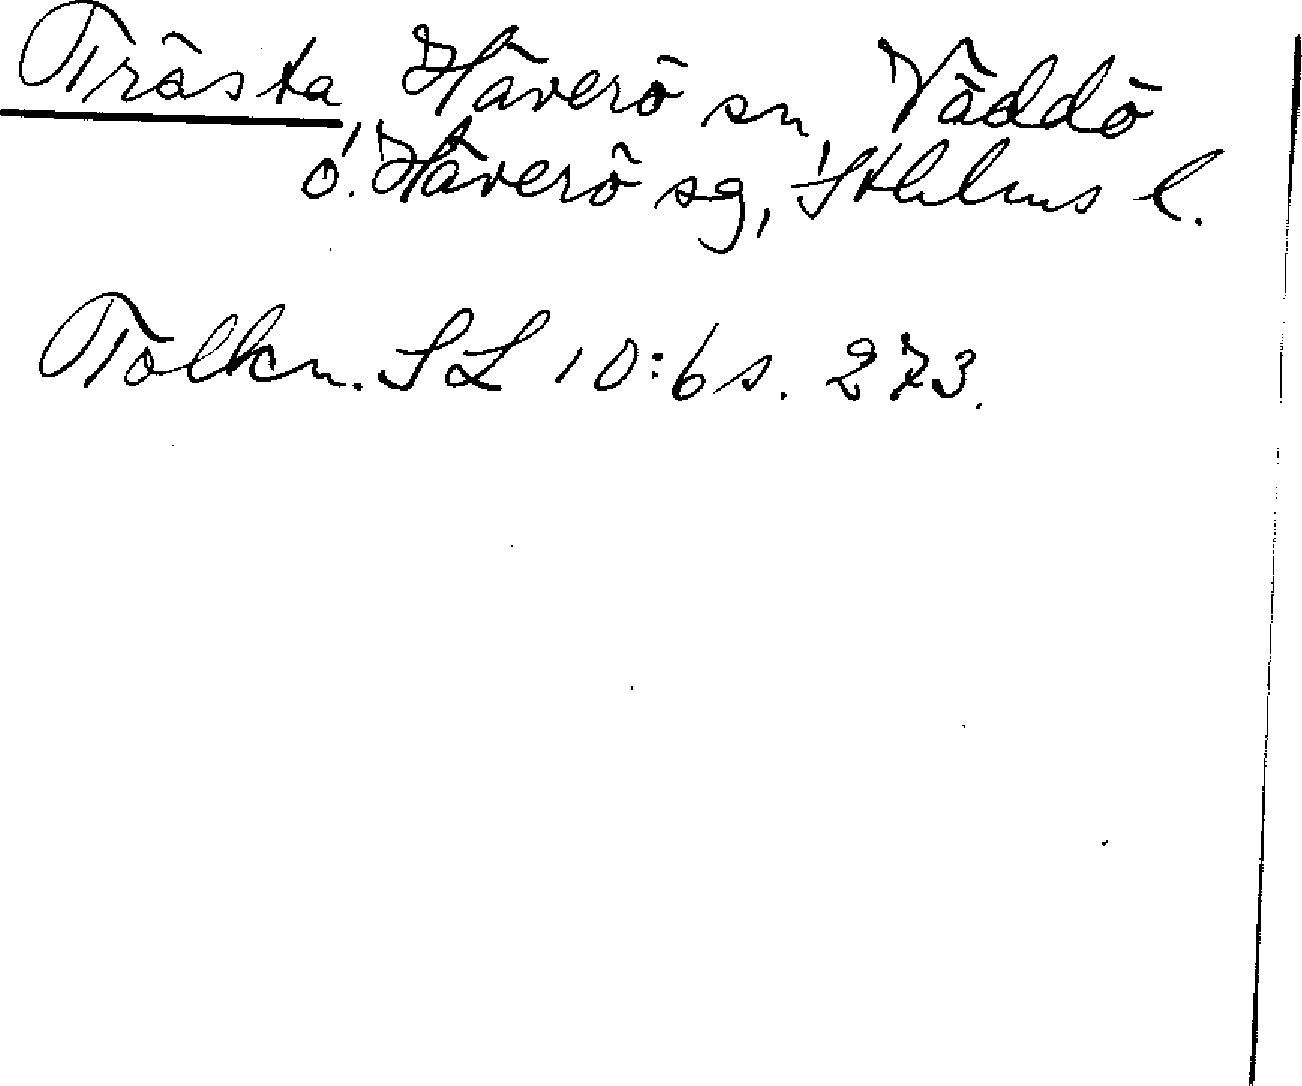 Trästa, Häverö sn, Väddö
o. Häverö sg, Sthlms l.
Tolkn. SL 10:6 s. 273.